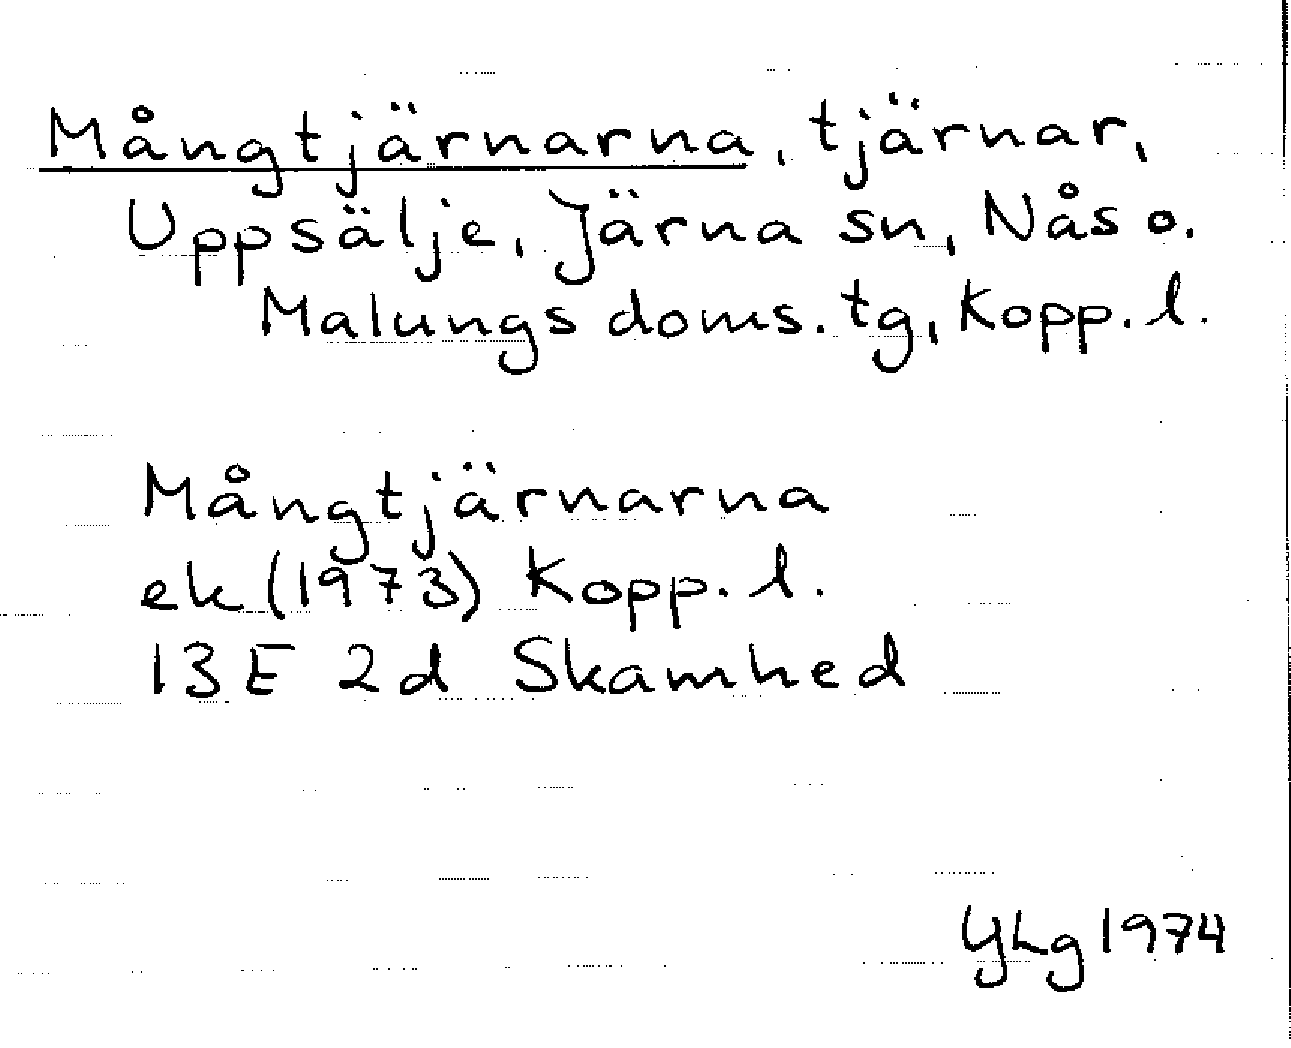 Mångtjärnarna, tjärnar,
Uppsälje, Järna sn, Nås o.
Malungs doms. tg, Kopp. l.
Mångtjärnarna
ek (1973) Kopp. l.
13 E 2d Skamhed
YLg 1974